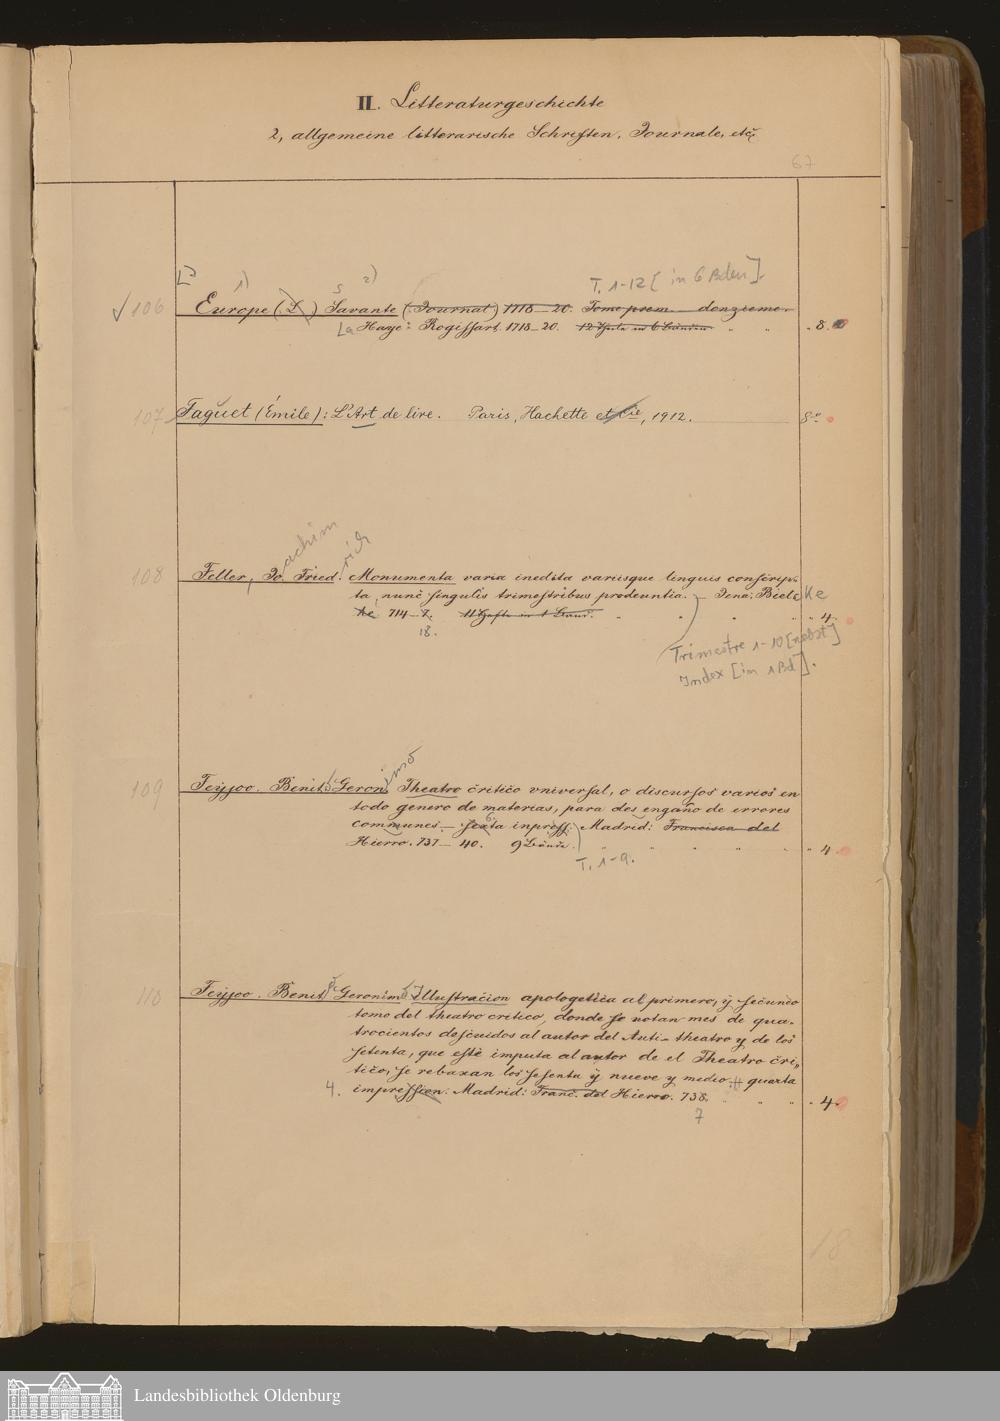 II. Litteraturgeschichte
2, allgemeine litterarische Schriften, Journale, etc.
67
1) s 2) T. 1-12 [in 6 Bden].
106 Europe (L) Savante (Journal) 1718-20. Tome prem. douzieme.
La Haye: Rogissart. 1718-20. 12 Theile in 6 Bänden " " 8.
107 Faguet (Émile): L'Art de lire. Paris, Hachette et Cie, 1912. 8°
achim rich
108 Feller, Jo. Fried. Monumenta varia inedita variisque linguis conscrip-
ta, nunc singulis trimestribus prodeuntia. - Jena: Biel ke
ke 714-7. 11 Hefte in 1 Band. " " " " 4.
18.
Trimestre 1-10 [nebst]
Index [in 1 Bd].
imo
109 Feyjoo. Benit. Geron. Theatro critico vniversal, o discursos varios en
todo genero de materias, para des engaño de errores
communes. - sexta impress. Madrid: Francisco del
Hierro. 737-40. 9 Bände. " " " " 4.
T. 1-9.
110 Feyjoo. Benit. Geronimo Illustracion apologetica al primero, ÿ secundo
tomo del theatro critico, donde se notan mes de qua-
trocientos descuidos al autor del Anti-theatro y de los
setenta, que este imputa al autor de el Theatro cri-
tico, se rebaxan los sesenta ÿ nueve y medio. quarta
4. impression. Madrid: Franc. del Hierro. 738. " " " 4.
7
18
Landesbibliothek Oldenburg